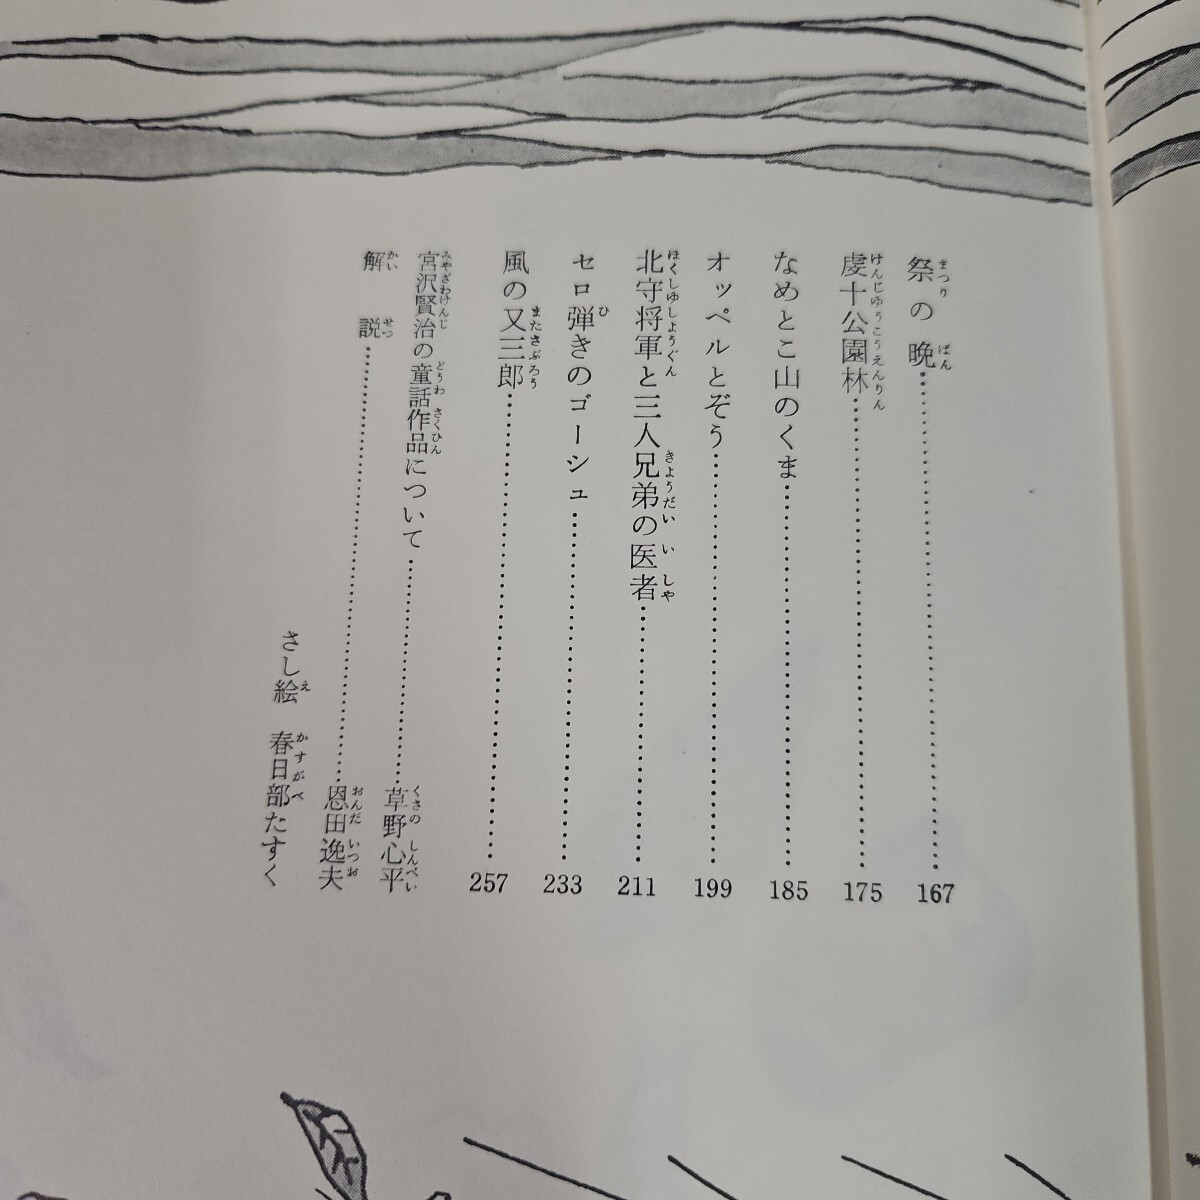 祭の晩……167
虔十公園林……175
なめとこ山のくま……185
オッペルとぞう……199
北守将軍と三人兄弟の医者……211
セロ弾きのゴーシュ……233
風の又三郎……257
宮沢賢治の童話作品について……草野心平
解説……恩田逸夫
さし絵 春日部たすく